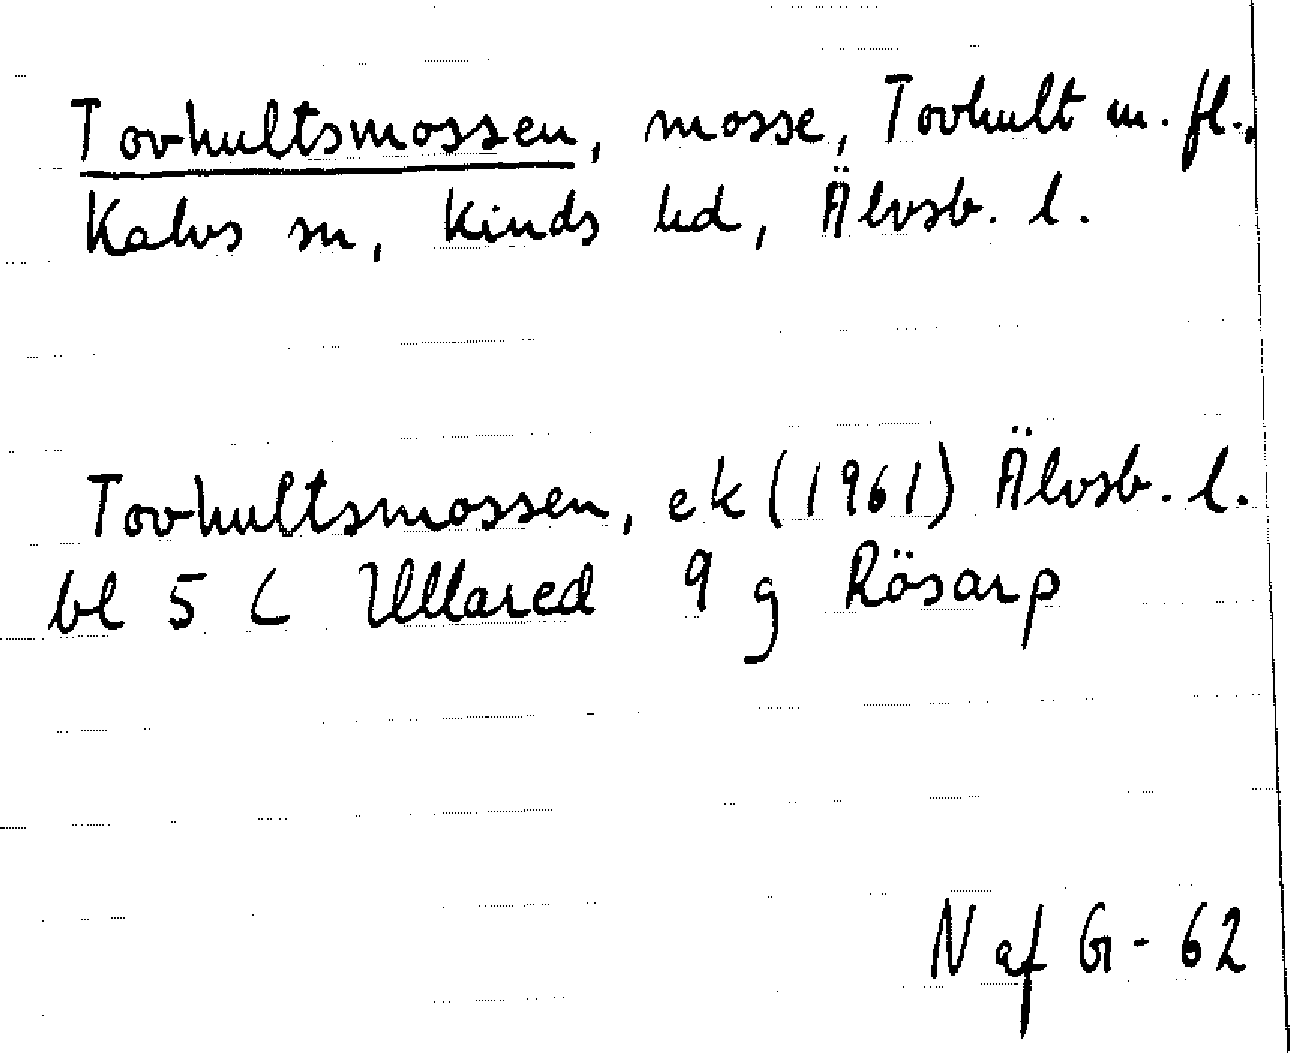 Tovhultsmossen, mosse, Tovhult m. fl.,
Kalvs sn, Kinds hd, Älvsb. l.
Tovhultsmossen, ek (1961) Älvsb. l.
bl 5 C Ullared 9 g Rösarp
N af G - 62